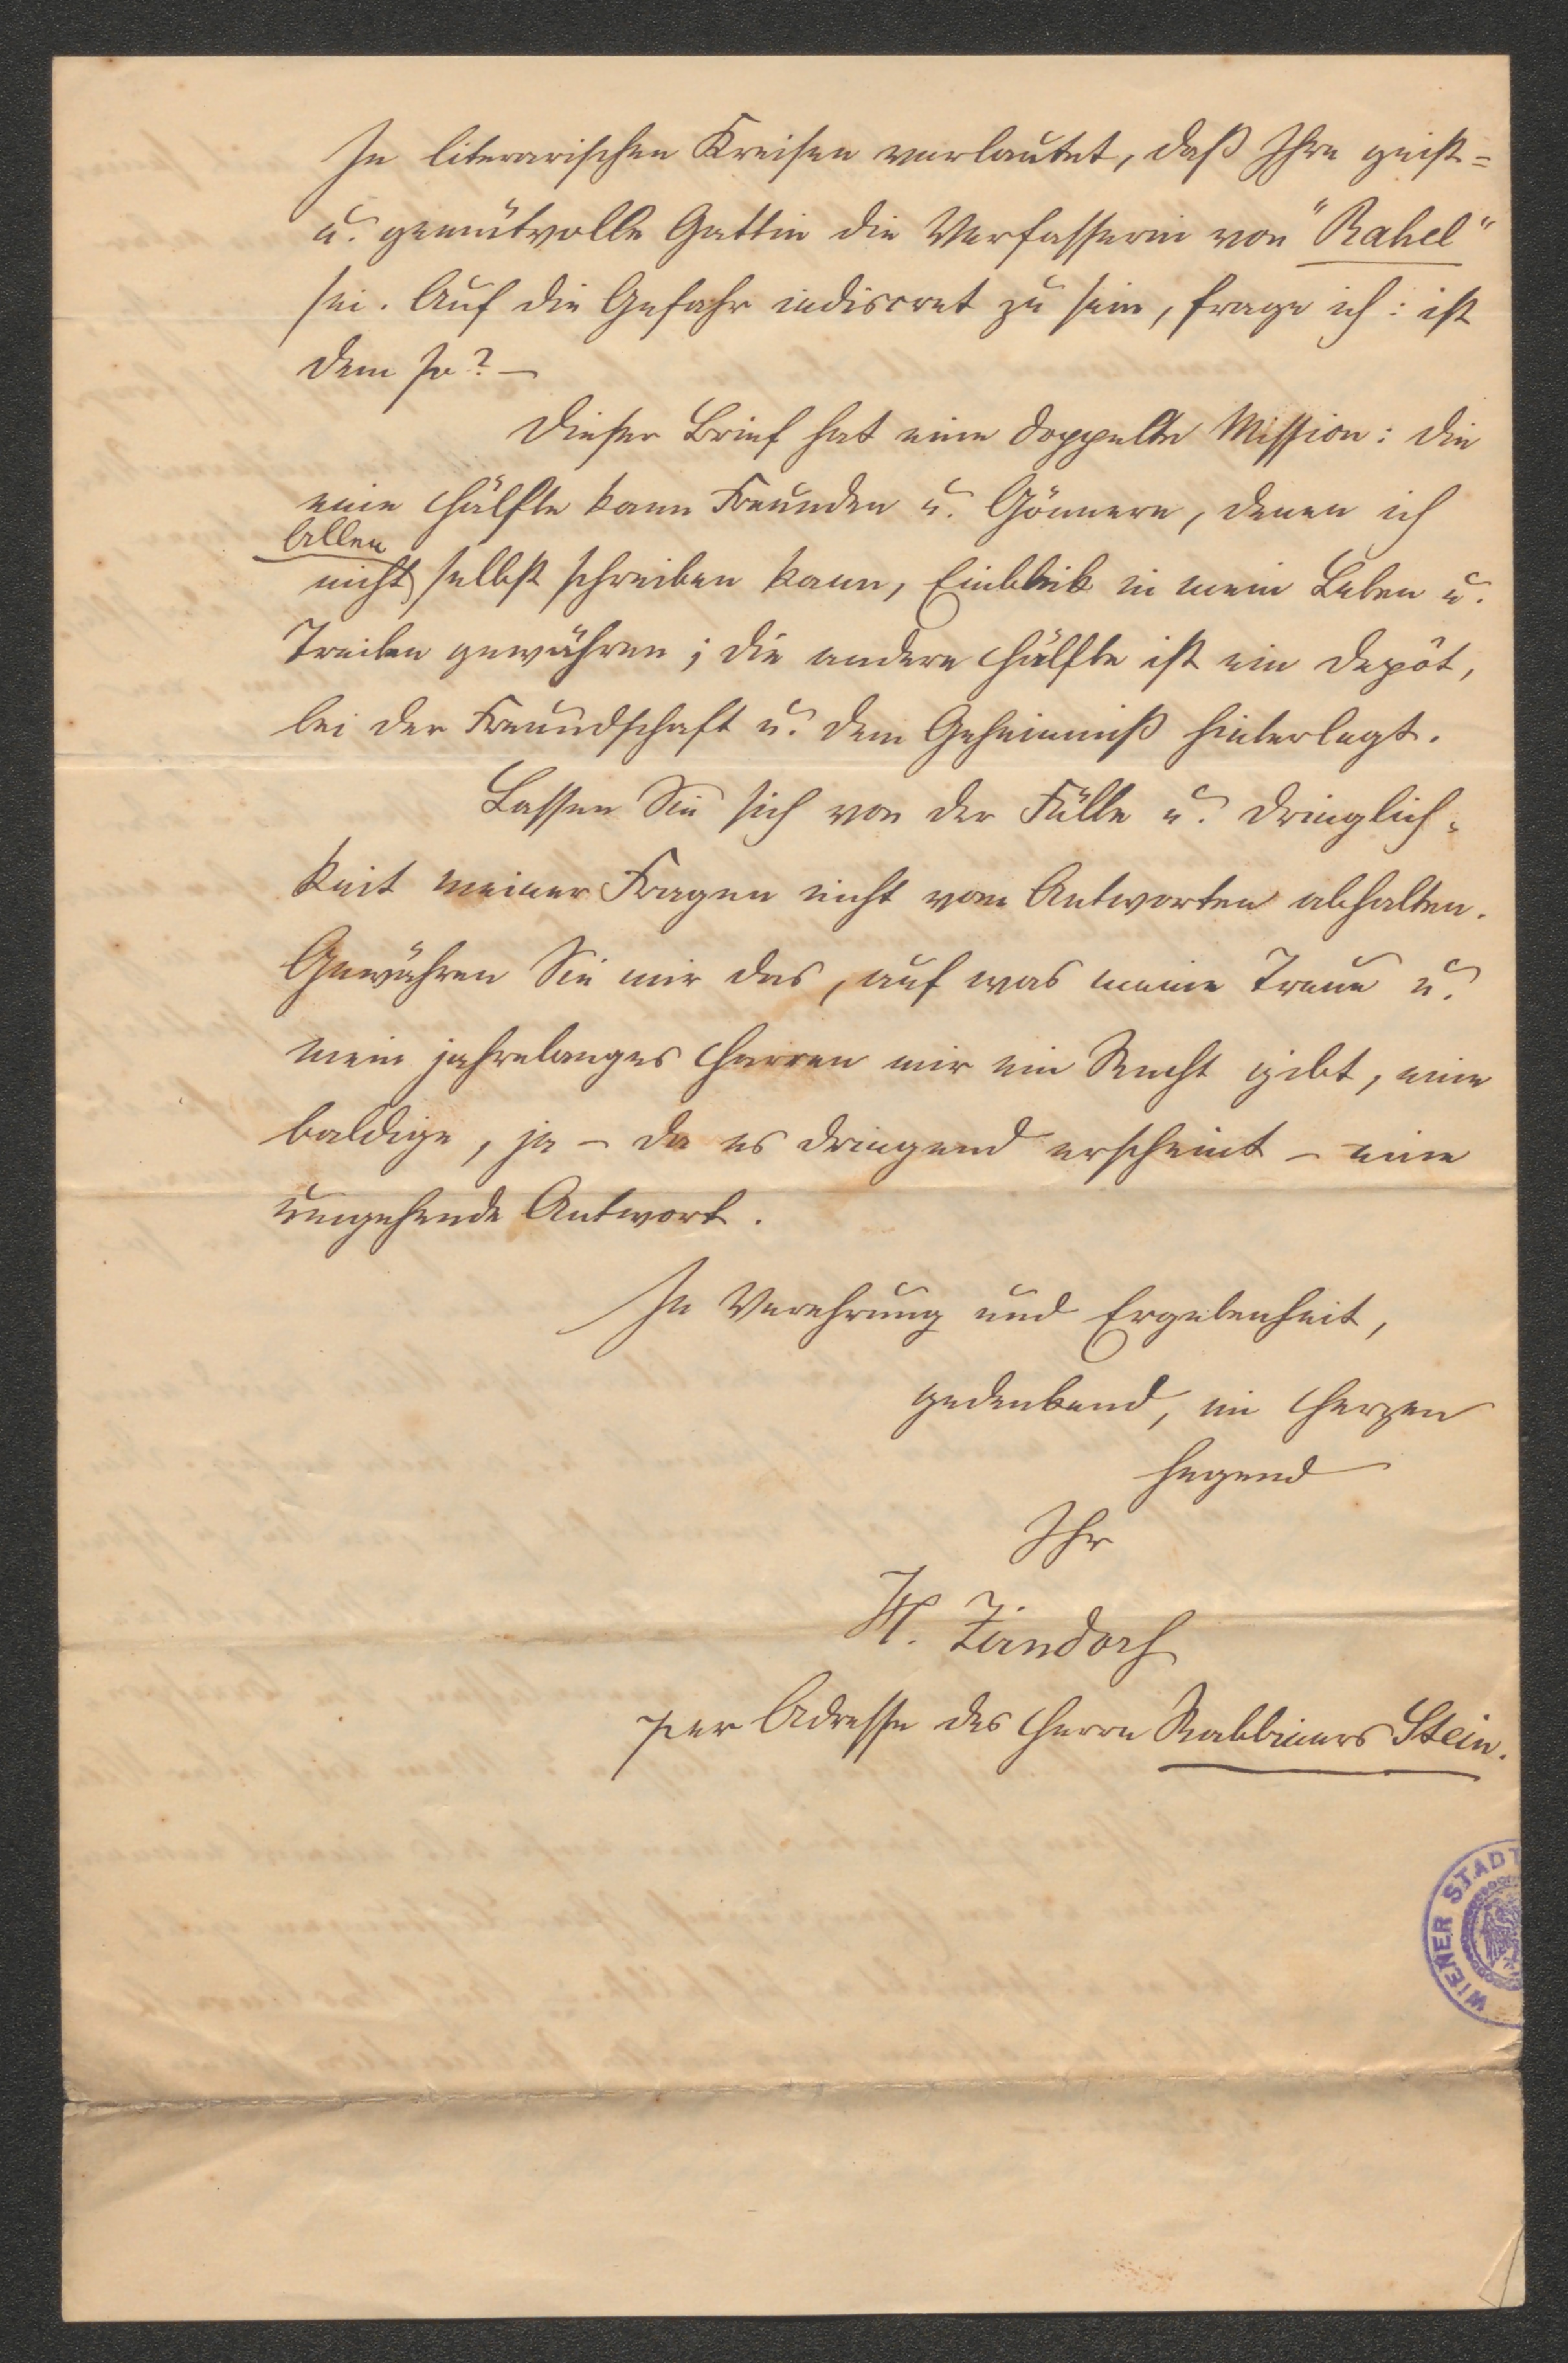 In literarischen Kreisen verlautet, daß Ihre geist=
u. gemütvolle Gattin die Verfasserin von "Rahel"
sei. Auf die Gefahr indiscret zu sein, frage ich: ist
dem so? —
Dieser Brief hat eine doppelte Mission: die
eine Hälfte kann Freunden u. Gönnern, denen ich
Allen
nicht selbst schreiben kann, Einblick in mein Leben u.
Treiben gewähren; die andere Hälfte ist ein Depôt,
bei der Freundschaft u. dem Geheimniß hinterlegt.
Lassen Sie sich von der Fülle u. Dringlich=
keit meiner Fragen nicht vom Antworten abhalten.
Gewähren Sie mir das, auf was meine Treue u.
mein jahrelanges Harren mir ein Recht gibt, eine
baldige, ja – da es dringend erscheint – eine
umgehende Antwort.
In Verehrung und Ergebenheit,
gedenkend, im Herzen
hegend
Ihr
H. Zirndorf
per Adresse des Herrn Rabbiners Stein.
WIENER STADT